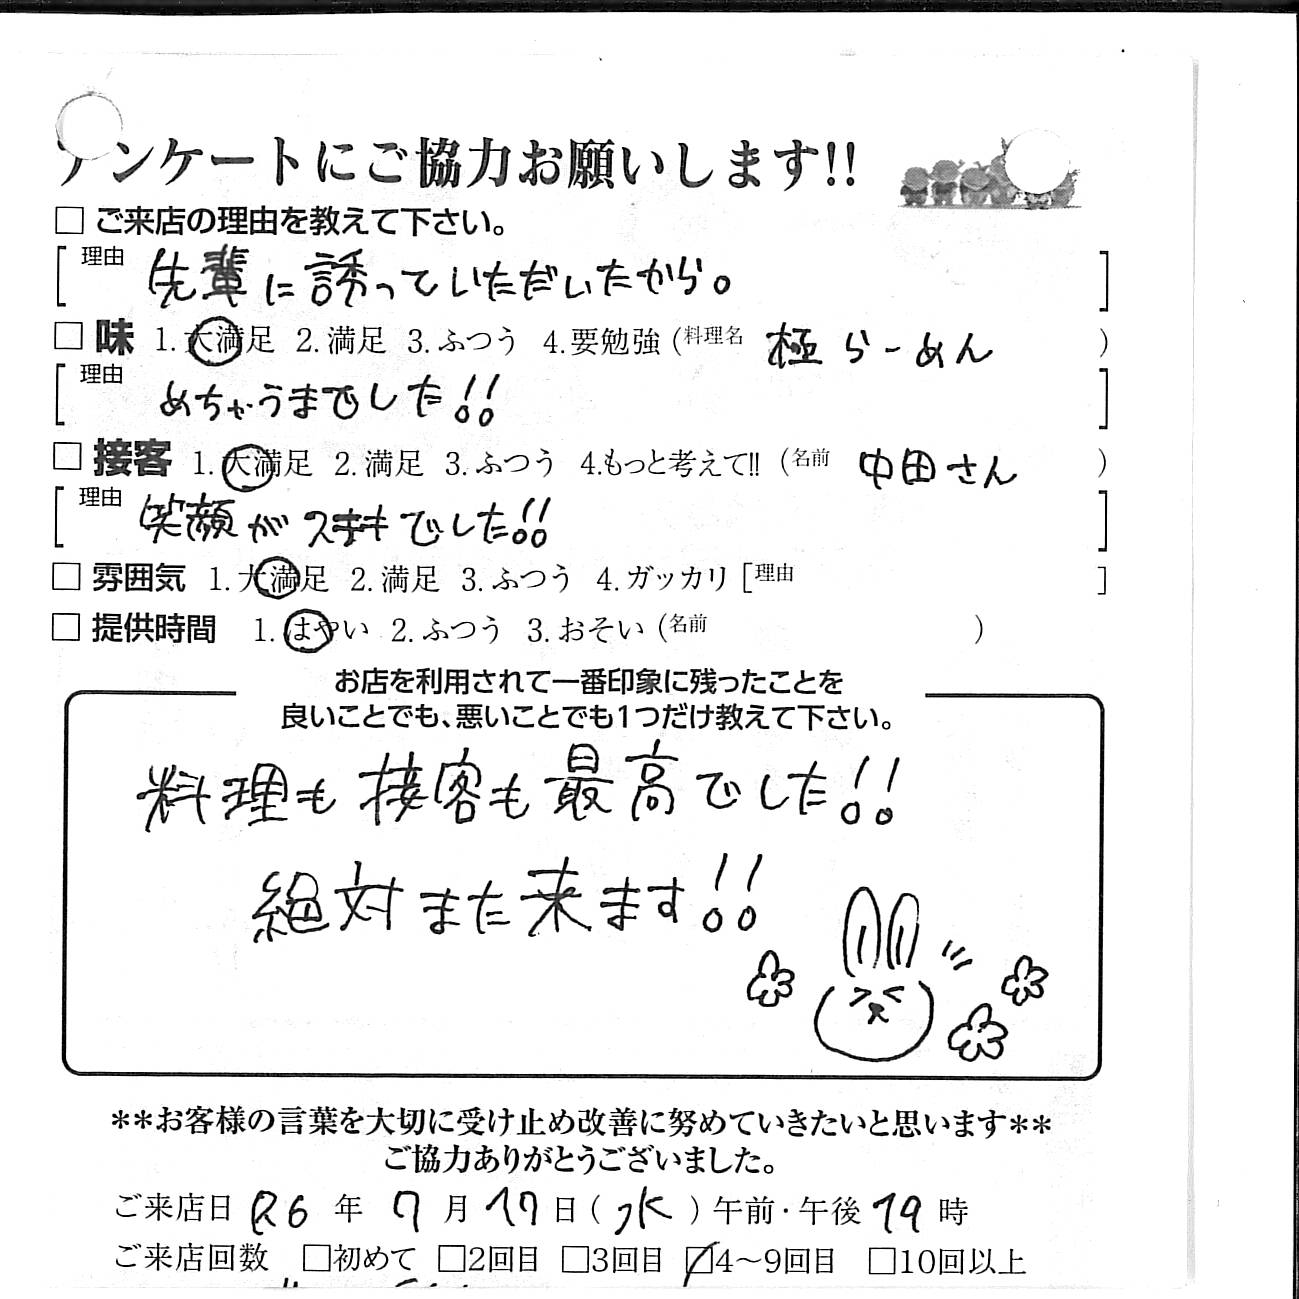 アンケートにご協力お願いします!!
□ ご来店の理由を教えて下さい。
[理由 先輩に誘っていただいたから。]
□ 味 1.大満足 2.満足 3.ふつう 4.要勉強 (料理名 極らーめん)
[理由 めちゃうまでした!!]
□ 接客 1.大満足 2.満足 3.ふつう 4.もっと考えて!! (名前 中田さん)
[理由 笑顔がステキでした!!]
□ 雰囲気 1.大満足 2.満足 3.ふつう 4.ガッカリ [理由 ]
□ 提供時間 1.はやい 2.ふつう 3.おそい (名前 )
お店を利用されて一番印象に残ったことを
良いことでも、悪いことでも1つだけ教えて下さい。
料理も接客も最高でした!!
絶対また来ます!!
**お客様の言葉を大切に受け止め改善に努めていきたいと思います**
ご協力ありがとうございました。
ご来店日 R6 年 7 月 17 日 (水) 午前・午後 19 時
ご来店回数 □初めて □2回目 □3回目 ☑4～9回目 □10回以上